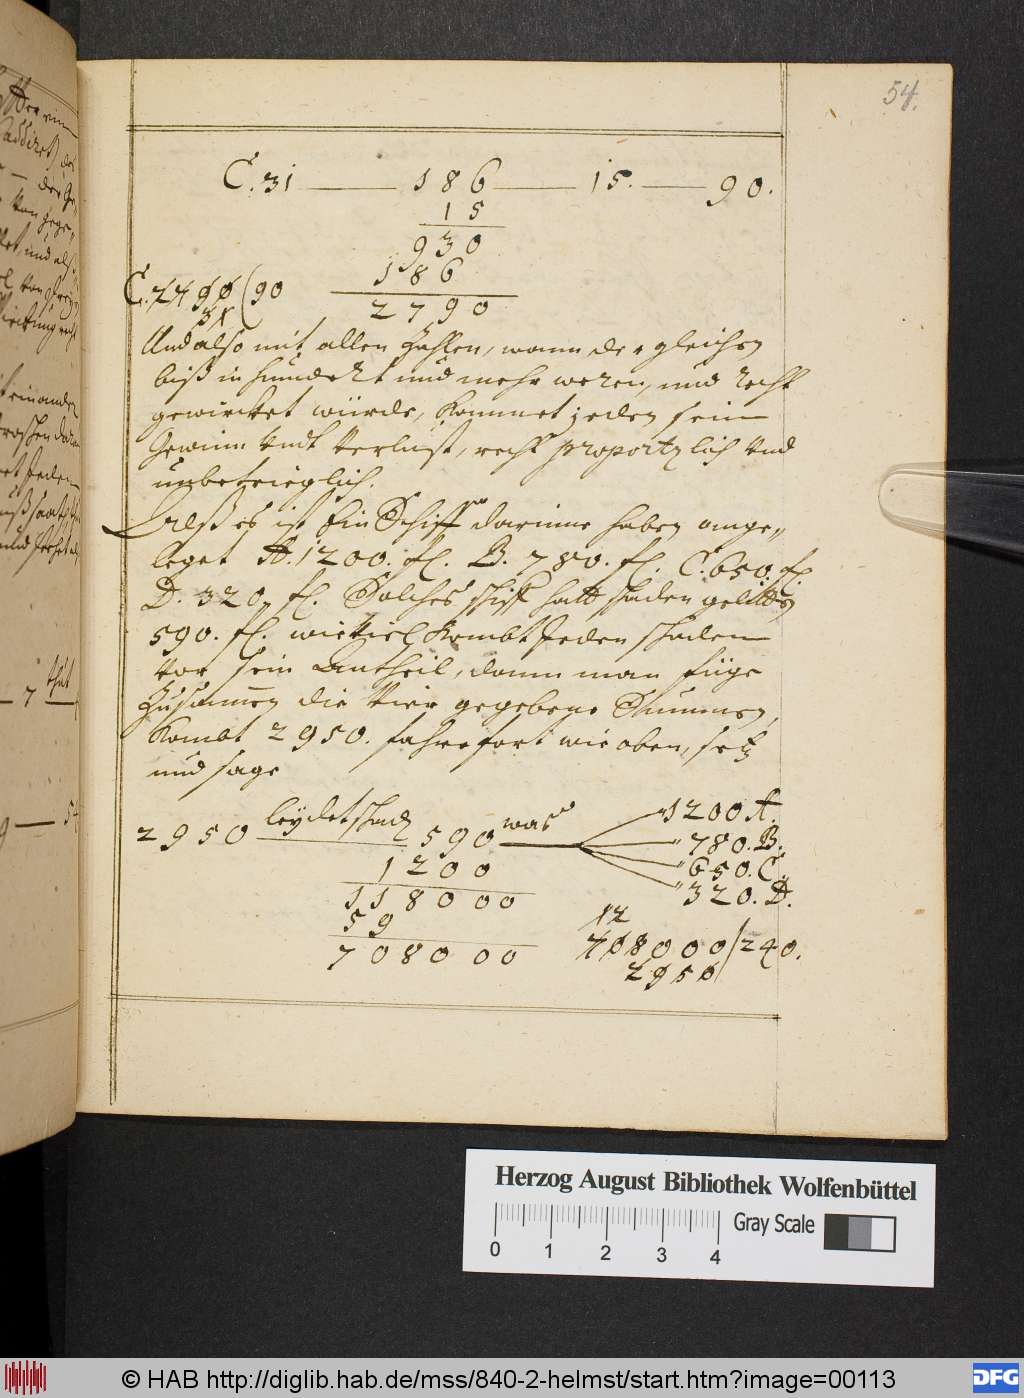 54.
C. 31 — 186 — 15. — 90.
15
930
186
C. 2790 (90
31
2790
Und also mit allen Zahlen, wann der gleichen
biß in hundert und mehr weren, und recht
gewircket würde, kommet jeden sein
Gewinn undt Verlust, recht proportzlich und
unbetrieglich.
Alß es ist Ein Schiff darinne haben ange„
leget A. 1200. fl. B. 780. fl. C. 650. fl.
D. 320, fl. Solches schiff hatt schaden gelitten
590. fl. wie viel kombt Jeden schaden
vor sein Antheil, dann man füge
Zusammen die Vier gegebene Summen,
kombt 2950. fahre fort wie oben, setz
und sage
2950 leydet schad 590 was 1200 A.
780. B.
650. C.
320. D.
1200
118000
59
708000
12
708000 / 240.
2950
Herzog August Bibliothek Wolfenbüttel
Gray Scale
0 1 2 3 4
© HAB http://diglib.hab.de/mss/840-2-helmst/start.htm?image=00113
DFG